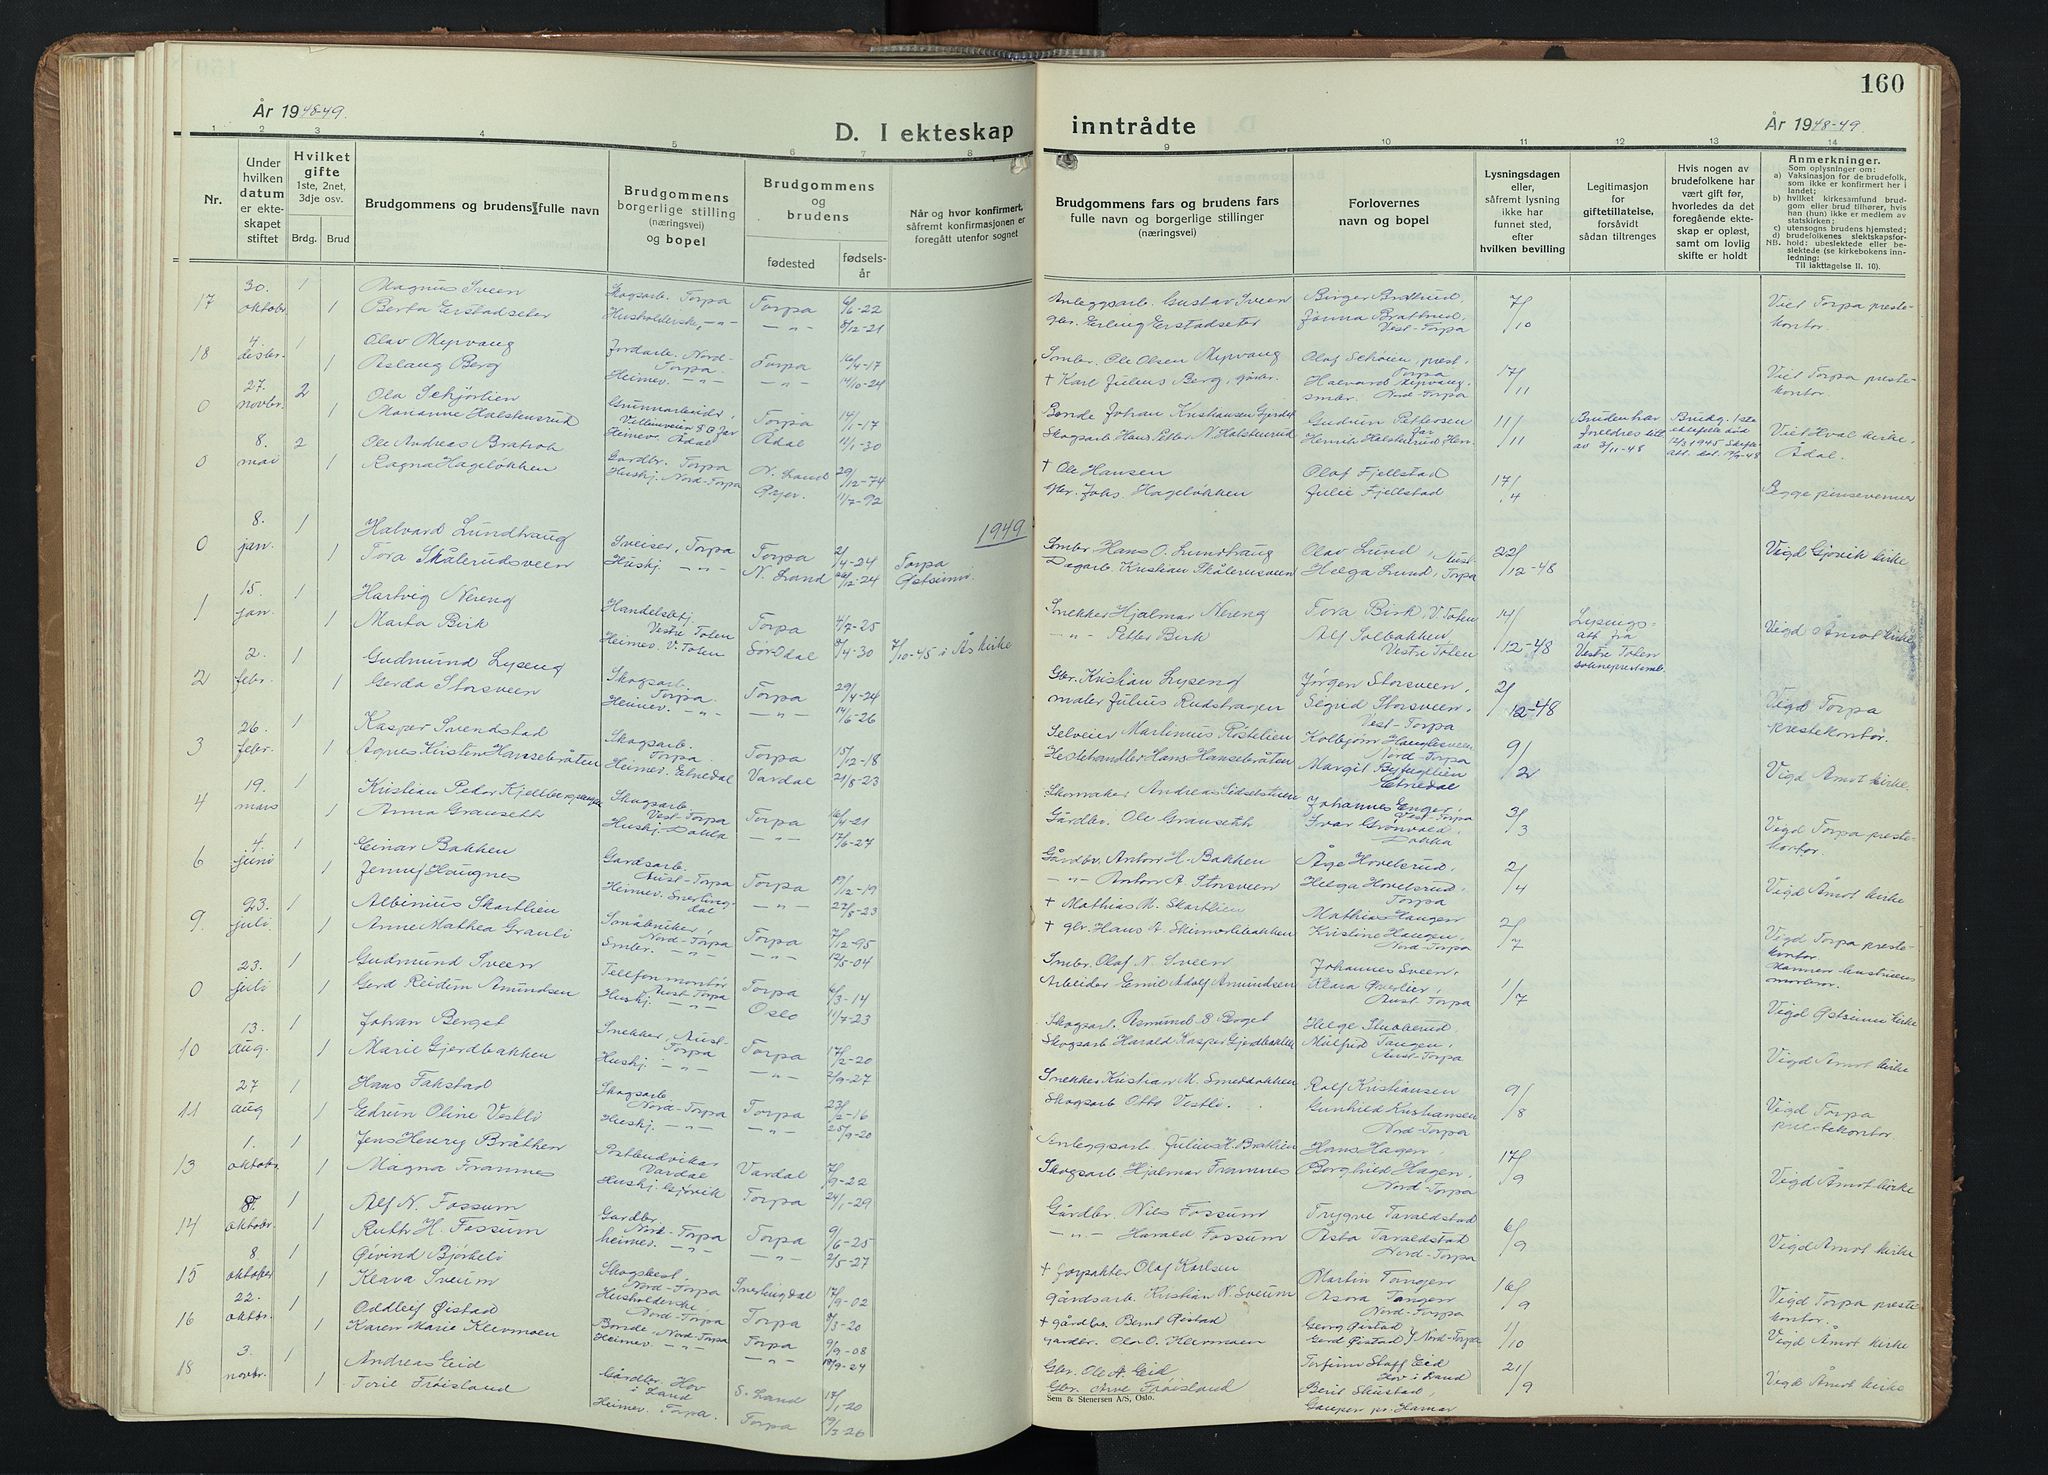 År 1948-49.
D. I ekteskap
inntrådte
160
År 1948-49.
1 2 3 4 5 6 7 8 9 10 11 12 13 14
Nr.
Under hvilken datum er ekteskapet stiftet
Hvilket gifte
1ste, 2net, 3dje osv.
Brdg. Brud
Brudgommens og brudens fulle navn
Brudgommens borgerlige stilling (næringsvei) og bopel
Brudgommens og brudens
fødested
fødselsår
Når og hvor konfirmert, såfremt konfirmasjonen er foregått utenfor sognet
Brudgommens fars og brudens fars fulle navn og borgerlige stillinger (næringsvei)
Forlovernes navn og bopel
Lysningsdagen eller, såfremt lysning ikke har funnet sted, efter hvilken bevilling
Legitimasjon for giftetillatelse, forsåvidt sådan tiltrenges
Hvis nogen av brudefolkene har vært gift før, hvorledes da det foregående ekteskap er opløst, samt om lovlig skifte er holdt
Anmerkninger.
Som oplysninger om:
a) Vaksinasjon for de brudefolk, som ikke er konfirmert her i landet;
b) hvilket kirkesamfund brudgom eller brud tilhører, hvis han (hun) ikke er medlem av statskirken;
c) utensogns brudens hjemsted;
d) brudefolkenes slektskapsforhold: ubeslektede eller beslektede (se kirkebokens innledning:
NB. Til iakttagelse II. 10).
17 30. oktobr. 1 Magnus Sveen Skogsarb. Torpa Torpa 6/6-22 Anleggsarb. Gustav Sveen Birger Bratrud, 7/10 Viet Torpa prestekontor.
1 Berta Erstadseter Husholderske, -"- -"- 8/12-21 Gbr. Erling Erstadseter Vest-Torpa
18 4. desbr. 1 Olav Myrvang Jordarb. Nord-Torpa Torpa 16/4-17 Smbr. Ole Olsen Myrvang Olaf Schøien, prest, Torpa 17/11 Viet Torpa prestekontor.
1 Aslaug Berg Heimev. -"- -"- 14/10-24 + Karl Julius Berg, gårbr. Halvard Myrvang, smbr. Nord-Torpa
0 27. novbr. 2 Ola Schjørlien Torpa 14/1-17 Gudrun Pettersen 11/11 Viet Hval kirke, Ådal.
1 Marianne Halstensrud Heimev. Ådal Ådal 11/1-30 Skogsarb. Hans Petter N. Halstenrud
0 8. mai 2 Ole Andreas Bratvoll Gardbr. Torpa N. Land 29/12-74 + Ole Hansen Olaf Fjellstad 17/4 Begge pinsevenner
1 Ragna Hageløkken Hushj. Nord-Torpa 11/7-92 Gbr. Johs. Hageløkken Julie Fjellstad
1949
0 8. jan. 1 Halvard Lundhaug Sveiser, Torpa Torpa 2/4-24 Torpa Smbr. Hans O. Lundhaug Olav Lund, Aust- 22/12-48 Vigd Gjøvik kirke
1 Tora Skålerudsveen Hushj. -"- N. Land 26/12-24 Østsinni Dagarb. Kristian Skålerudsveen Helga Lund, Torpa
1 15. jan. 1 Hartvig Nereng Handelsbtj. Vestre Toten Torpa 4/7-25 Snekker Hjalmar Nereng Tora Birk, V. Toten 14/12-48 Lysingsatt. frå Vestre Toten sokneprestemb. Vigd Åmot kirke
1 Marta Birk Heimev. V. Toten 8/4-30 7/10-45 i Ås kirke -"- Petter Birk Alf Solbakken Vestre Toten
2 2. febr. 1 Gudmund Lyseng Skogsarb. Torpa. Torpa 29/4-24 Gbr. Kristian Lyseng Jørgen Storsveen, 2/12-48 Vigd Torpa prestekontor.
1 Gerda Storsveen Heimev. -"- -"- 14/6-26 maler Julius Rudshagen Sigrid Storsveen, Vest-Torpa
3 26. febr. 1 Kasper Svendstad Skogsarb. Torpa. Torpa 15/12-18 Selveier Martinus Røstelien Kolbjørn Hauglesveen Nord-Torpa 9/2 Vigd Åmot kirke
1 Agnes Kirsten Hansebråten Heimev. Etnedal Vardal 21/8-23 Hestehandler Hans Hansebråten Margit Byfuglien Etnedal
4 19. mars 1 Kristian Peder Kjellbergshagen Skogsarb. Vest-Torpa Torpa 16/4-21 Skomaker Andreas Sidselstuen Johannes Enger, Vest-Torpa 3/3 Vigd Torpa prestekontor
1 Anna Grauseth Hushj. Dokka -"- 17/6-27 Gårdbr. Ole Grauseth Ivar Grønvold, Dokka
6 4. juni 1 Einar Bakken Gardsarb. Aust-Torpa Torpa 19/12-19 Gårdbr. Anton H. Bakken Åge Hovelsrud 2/4 Vigd Åmot kirke
1 Jenny Haugnes Heimev. Snertingdal -"- 27/8-23 -"- Anton A. Storsveen Helga Hovelsrud, Torpa
9. 23. juli 1 Albinius Skartlien Småbruker, Nord-Torpa Torpa 7/12-95 + Mathias M. Skartlien Mathias Haugen 2/7 Vigd Torpa prestekontor.
1 Anne Mathea Grauli Smbr. -"- -"- 12/5-04 + gbr. Hans A. Skinnerlibakken Kristine Haugen, Nord-Torpa
0 23. juli 1 Gudmund Sveen Telefonmontør Aust-Torpa Torpa 6/3-14 Smbr. Olaf N. Sveen Johannes Sveen, 1/7 Vigd Østsinni kirke
1 Gerd Reidun Amundsen Hushj. -"- Oslo 11/7-23 Arbeider Emil Adolf Amundsen Klara Øverlier, Aust-Torpa
10 13. aug. 1 Johan Berget Snekker, Aust-Torpa Torpa 17/2-20 Skogsarb. Asmund S Berget Helge Stubberud, Vigd Åmot kirke
1 Marie Gjerdbakken Hushj. -"- -"- 2/9-27 Skogsarb Harald Kasper Gjerdbakken Målfrid Tangen, Aust-Torpa
11 27 aug 1 Hans Fakstad Skogsarb Nord-Torpa Torpa 23/2-16 Snekker Kristian M. Smedbakken Rolf Kristiansen 9/8 Vigd Torpa prestekontor
1 Gudrun Oline Vestli Hushj. -"- -"- 25/9-20 Skogsarb Otto Vestli. Gunhild Kristiansen Nord-Torpa
13 1. oktobr. 1 Jens Henry Bråthen Vardal Vardal 7/9-22 Anleggsarb. Julius H. Bråthen Hans Hagen, 17/9 Vigd Åmot kirke
1 Magna Framnes Hushj. Gjøvik Torpa 24/1-29 Skogsarb Hjalmar Framnes Borghild Hagen, Nord-Torpa
14 8. oktobr. 1 Alf N. Fossum Gardbr. Nord-Torpa Torpa 9/6-25 Gårdbr. Nils Fossum Trygve Taraldstad 6/9 Vigd Åmot kirke
1 Ruth H. Fossum heimev. -"- -"- 2/5-27 -"- Harald Fossum Asta Taraldstad Nord-Torpa
15 8 oktober 1 Øivind Bjørkeli Skogsbest. Nord-Torpa Snertingdal 17/9-02 + forpakter Olaf Karlsen Martin Tangen 16/9 Vigd Torpa prestekontor.
1 Klara Sveum Husholderske Nord-Torpa Torpa 8/3-20 gårdsarb. Kristian N. Sveum Asora Tangen Nord-Torpa
16 22. oktbr. 1 Oddleif Øistad Bonde, Nord-Torpa Torpa 9/9-08 + gårdbr. Bernt Øistad Georg Øistad 1/10 Vigd Åmot kirke
1 Karen Marie Klevmoen Heimev. -"- -"- 19/9-24 gårdbr. Ole O. Klevmoen Gerd Øistad } Nord-Torpa
18 3. novbr. 1 Andreas Eid Gårdbr. Hov i Land S. Land 17/1-20 Gbr. Ole A. Eid Torfinn Staff Eid Hov i Land 21/9 Vigd Åmot kirke
1 Toril Frøisland Heimev. Torpa. Torpa 19/3-26 Gbr. Arve Frøisland Berit Skustad, Gaupen pr. Hamar
Sem & Stenersen A/S, Oslo.